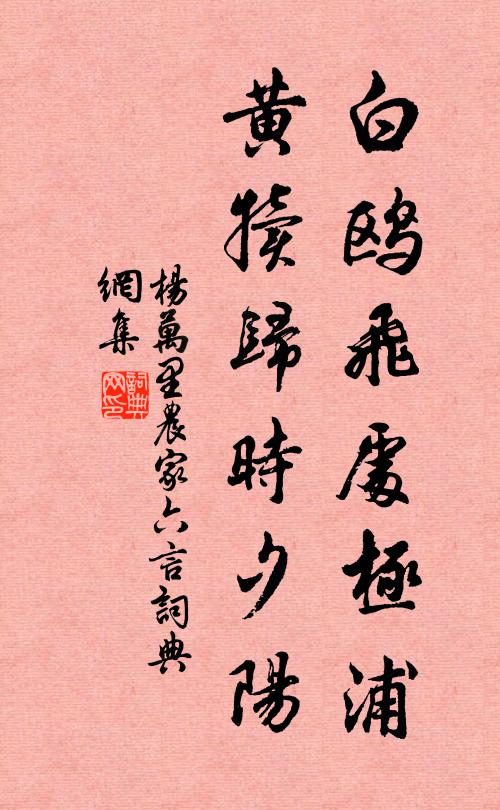 白鷗飛處極浦
黃犢歸時夕陽
楊萬里農家六言詞典
網集
詞典
网印